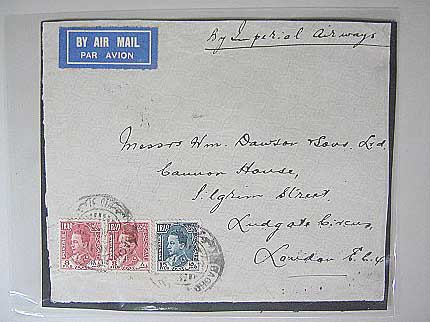 BY AIR MAIL
PAR AVION
By Imperial Airways
Messrs Wm. Dawson & Sons. Ltd.
Cannon House,
Pilgrim Street,
Ludgate Circus,
London E.C.4